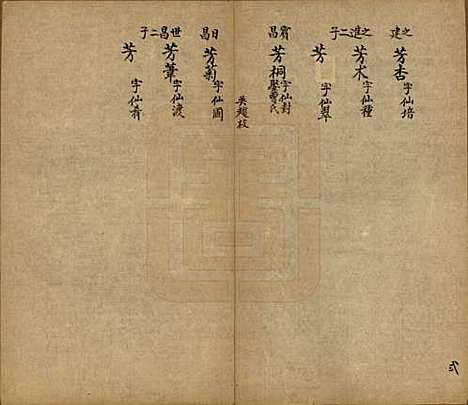 之建 芳杏 字仙培
之進二子 芳木 字仙種
芳 字仙翠
賓昌 芳桐 字仙封 娶曹氏
日昌 芳菊 字仙圃
世昌二子 芳葦 字仙渡
芳 字仙肴